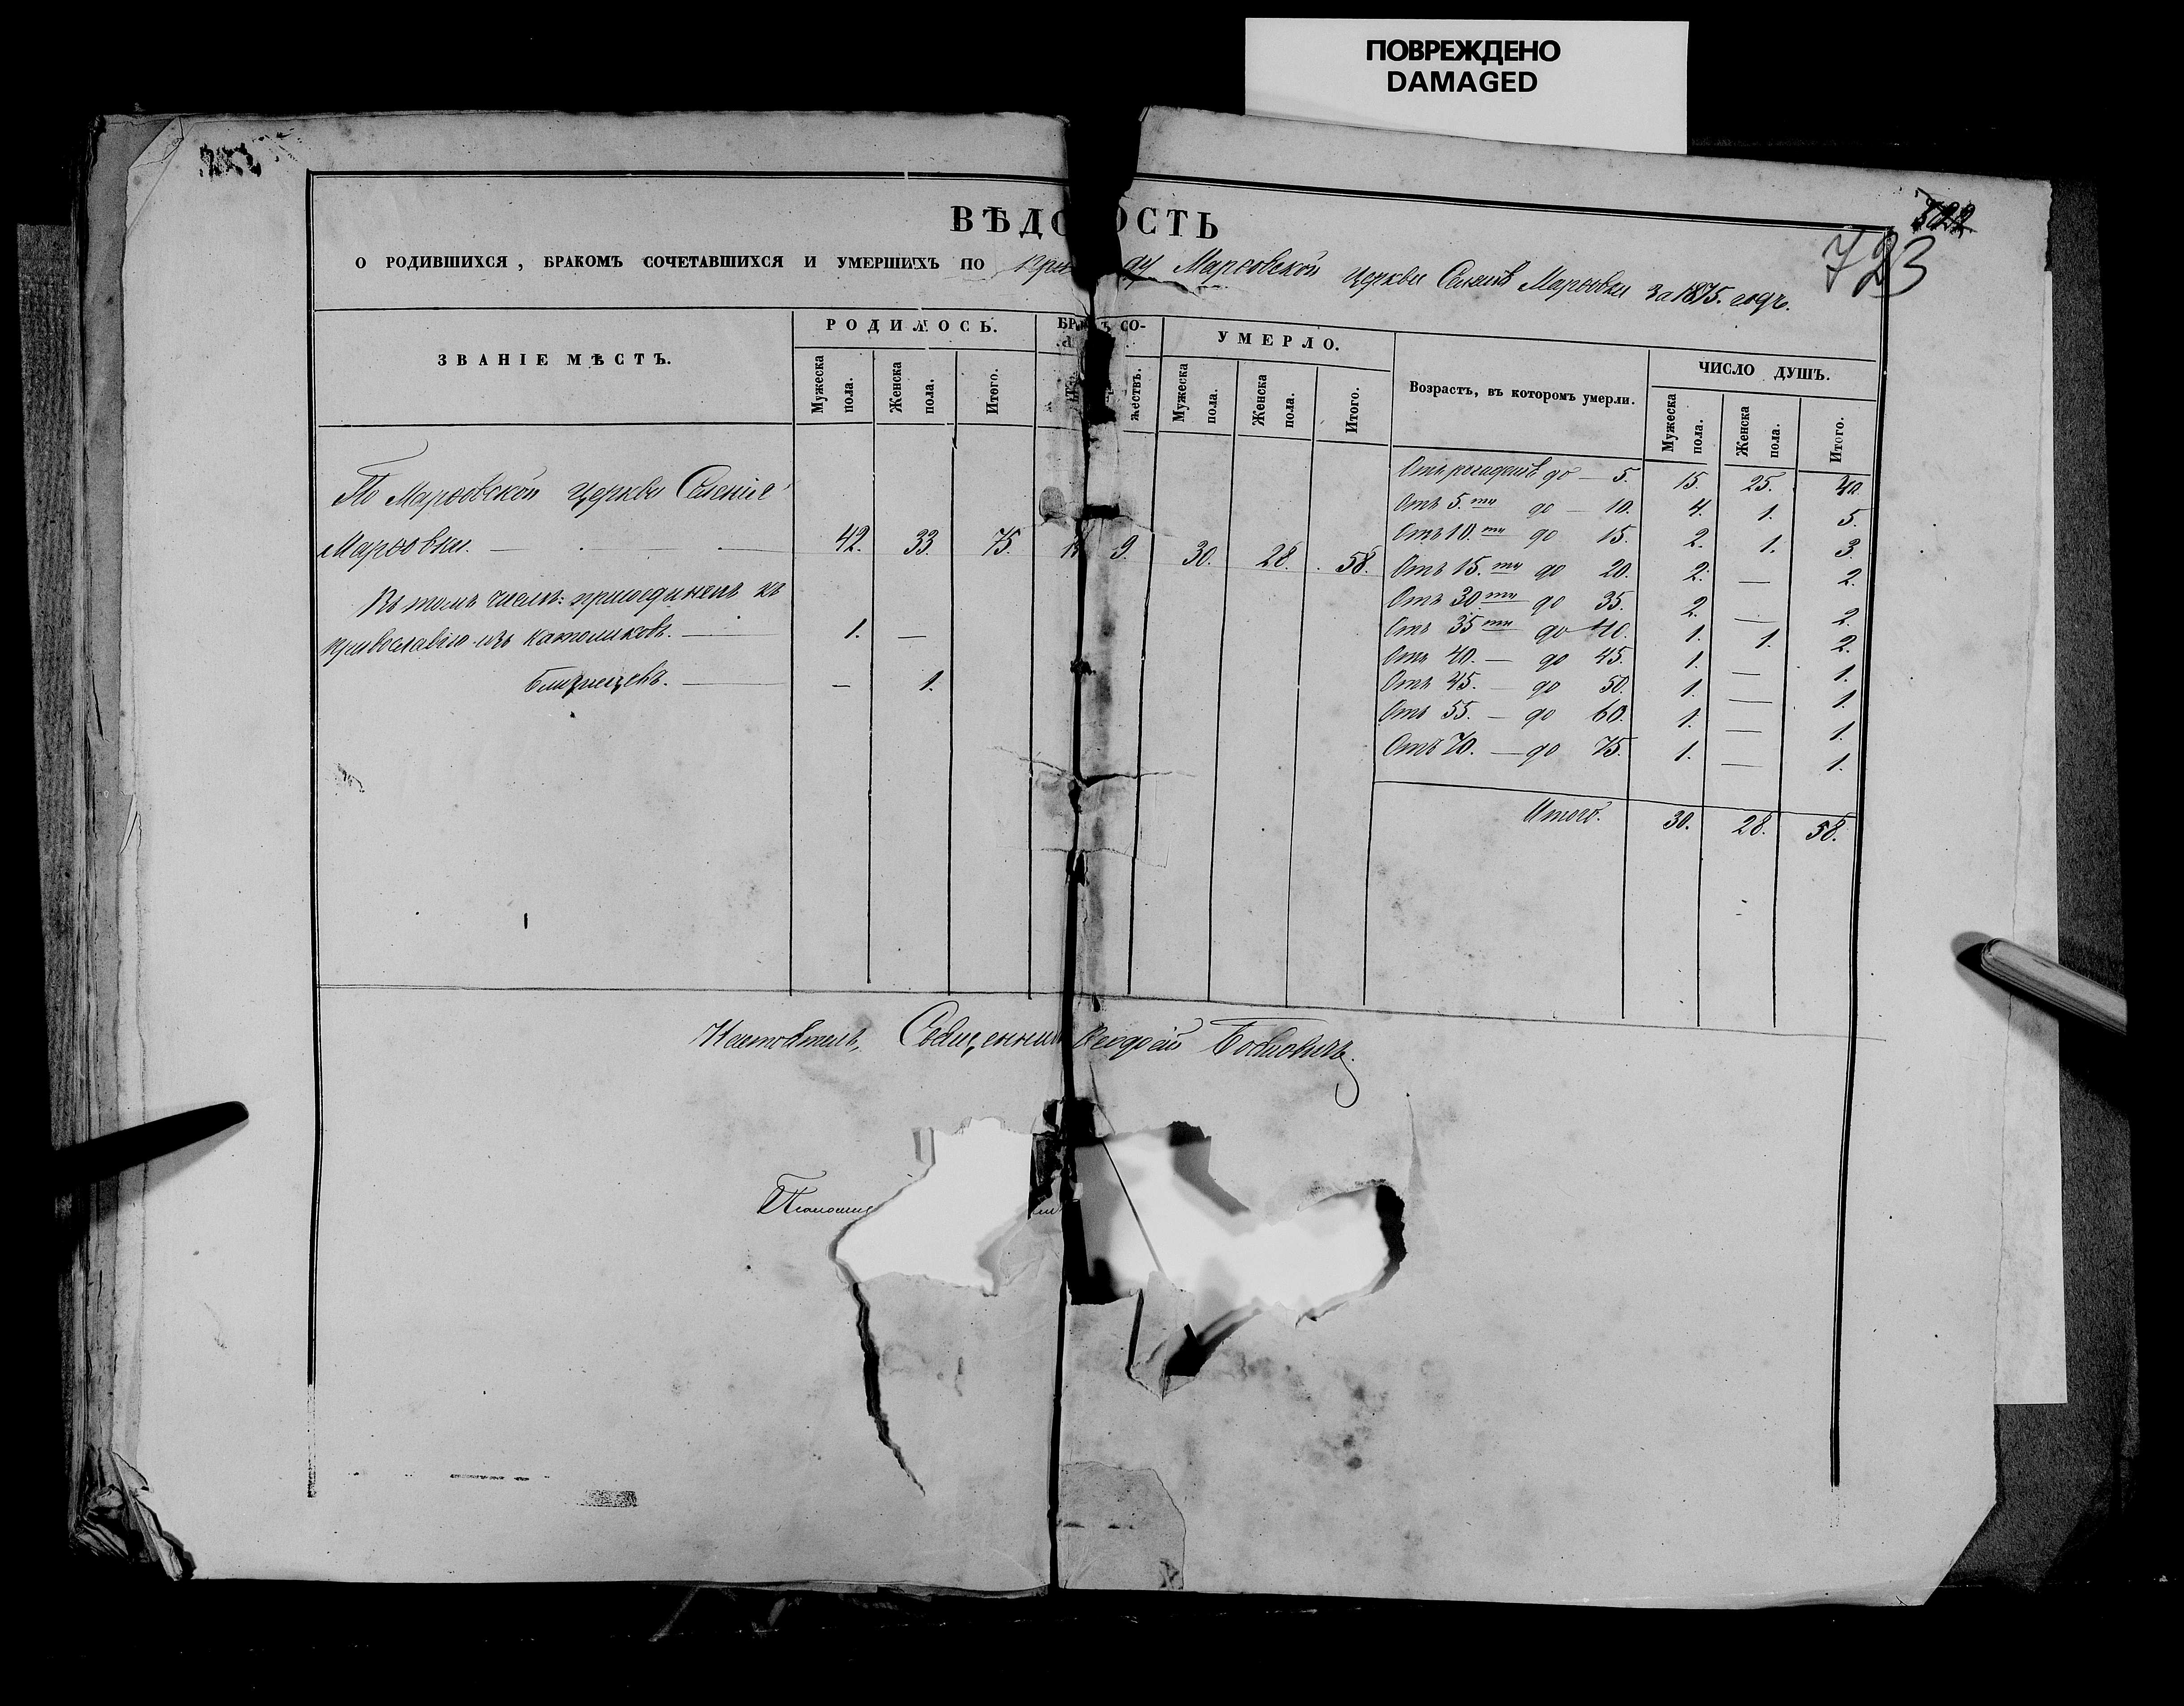 ПОВРЕЖДЕНО
DAMAGED
723
ВѢДО ОСТЬ
О РОДИВШИХСЯ, БРАКОМЪ СОЧЕТАВШИХСЯ И УМЕРШИХЪ ПО при ду Марѳовской Церкви Селенія Марѳовки за 1875. годъ.
ЗВАНІЕ МѢСТЪ.
РОДИЛОСЬ.
СО-
УМЕРЛО.
Возрастъ, въ которомъ умерли.
ЧИСЛО ДУШЪ.
Мужеска пола. Женска пола. Итого. жествъ. Мужеска пола. Женска пола. Итого. Мужеска пола. Женска пола. Итого.
По Марѳовской Церкви Селеніе
Марѳовки. — 42. 33. 75. 9. 30. 28. 58.
Въ томъ числѣ: присоединенъ къ
православію изъ католиковъ. — 1. —
Близнецевъ. — — 1.
Отъ рожденія до — 5. 15. 25. 40.
Отъ 5.ти до — 10. 4. 1. 5.
Отъ 10.ти до 15. 2. 1. 3.
Отъ 15.ти до 20. 2. — 2.
Отъ 30ти до 35. 2. — 2.
Отъ 35ти до 40. 1. 1. 2.
Отъ 40. — до 45. 1. — 1.
Отъ 45. — до 50. 1. — 1.
Отъ 55. — до 60. 1. — 1.
Отъ 70. — до 75. 1. — 1.
Итого. 30. 28. 58.
Настоятель, Священник